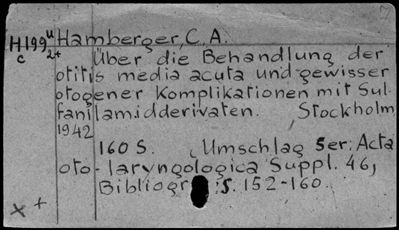 H199u Hamberger, C. A.
c 2+ Über die Behandlung der
otitis media acuta und gewisser
otogener Komplikationen mit Sul-
fanilamidderivaten. Stockholm
1942
160 S. (Umschlag 5er: Acta
oto-laryngologica Suppl. 46)
Bibliogr. : S. 152-160.
x +